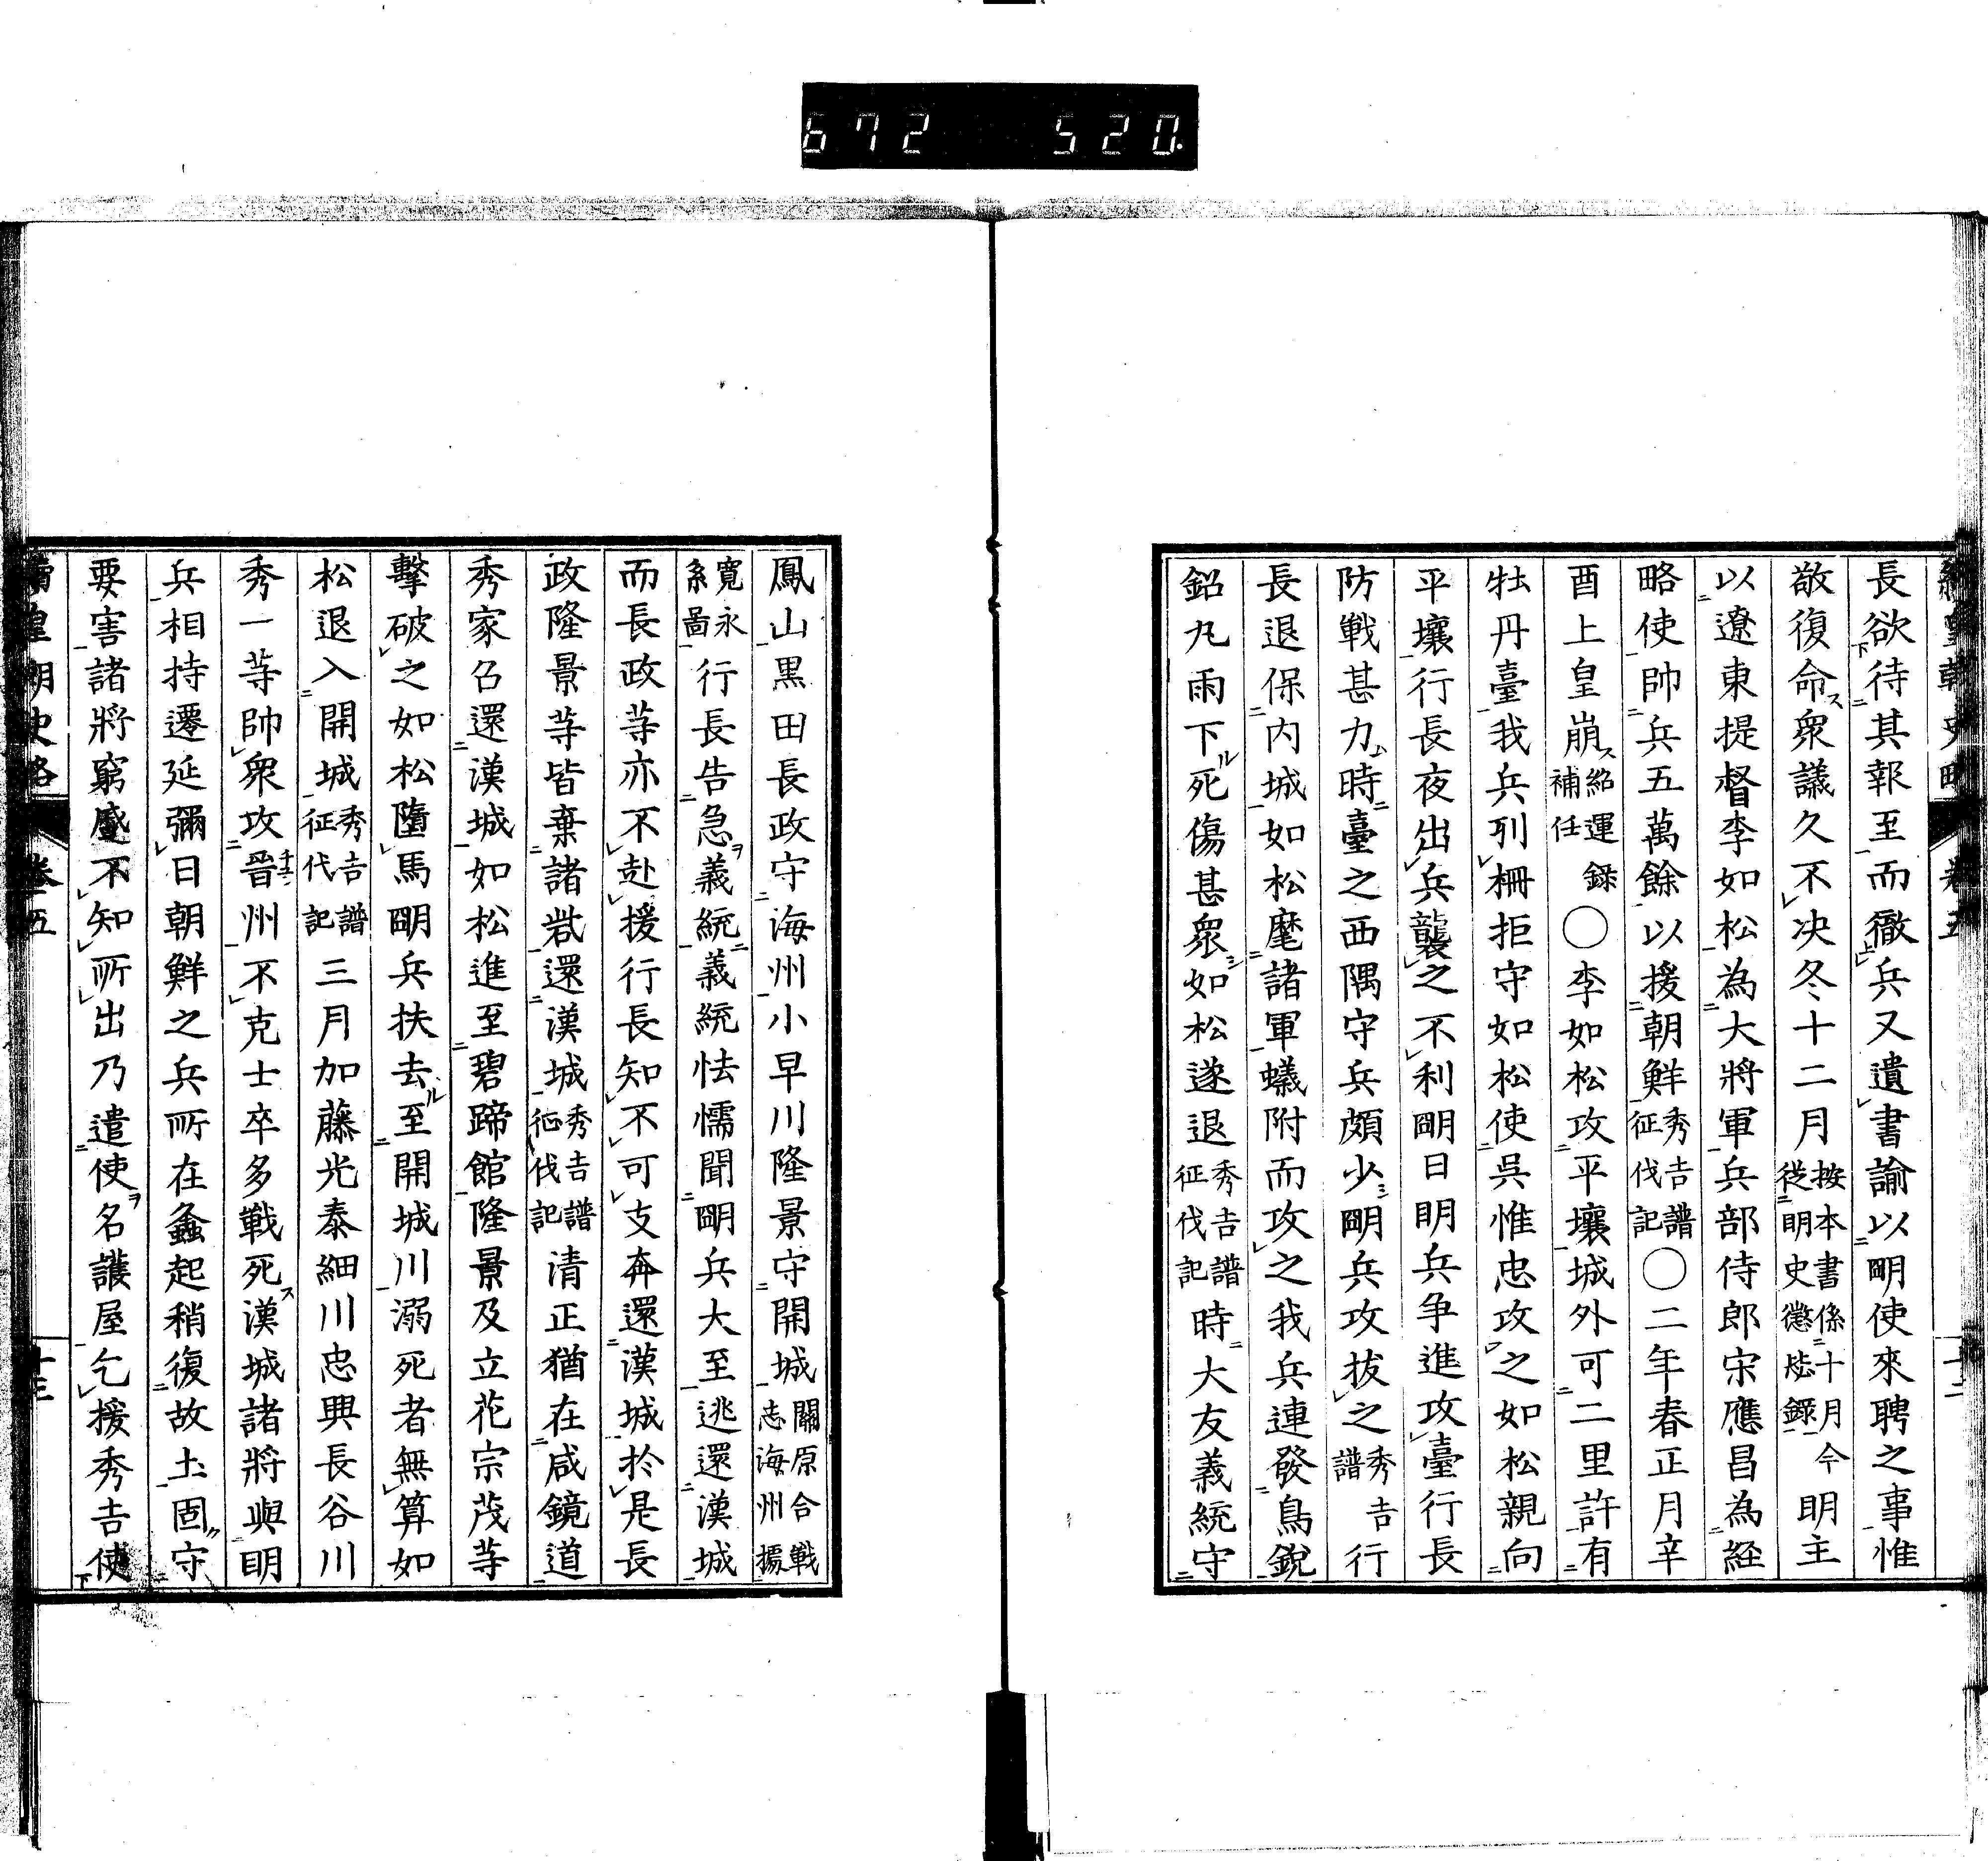 672 520.
長欲待其報至而徹兵又遺書諭以明使來聘之事惟
敬復命衆議久不决冬十二月按本書係十月今從明史懲毖錄明主
以遼東提督李如松為大將軍兵部侍郎宋應昌為経
略使帥兵五萬餘以援朝鮮秀吉譜征伐記〇二年春正月辛
酉上皇崩紹運録補任〇李如松攻平壤城外可二里許有
牡丹臺我兵列柵拒守如松使呉惟忠攻之如松親向
平壤行長夜出兵襲之不利明日明兵争進攻臺行長
防戦甚力時臺之西隅守兵頗少明兵攻拔之秀吉譜行
長退保内城如松麾諸軍蟻附而攻之我兵連發鳥銳
鉛丸雨下死傷甚衆如松遂退秀吉譜征伐記時大友義統守
鳳山黒田長政守海州小早川隆景守開城關原合戦志海州據
寛永系圖行長告急義統義統怯懦聞明兵大至逃還漢城
而長政等亦不赴援行長知不可支奔還漢城於是長
政隆景等皆棄諸砦還漢城秀吉譜征伐記清正猶在咸鏡道
秀家召還漢城如松進至碧蹄館隆景及立花宗茂等
擊破之如松墮馬明兵扶去至開城川溺死者無算如
松退入開城秀吉譜征伐記三月加藤光泰細川忠興長谷川
秀一等帥衆攻晉州不克士卒多戦死漢城諸將與明
兵相持遷延彌日朝鮮之兵所在蠭起稍復故土固守
要害諸將窮蹙不知所出乃遣使名護屋乞援秀吉使
皇朝史略 卷五 十三